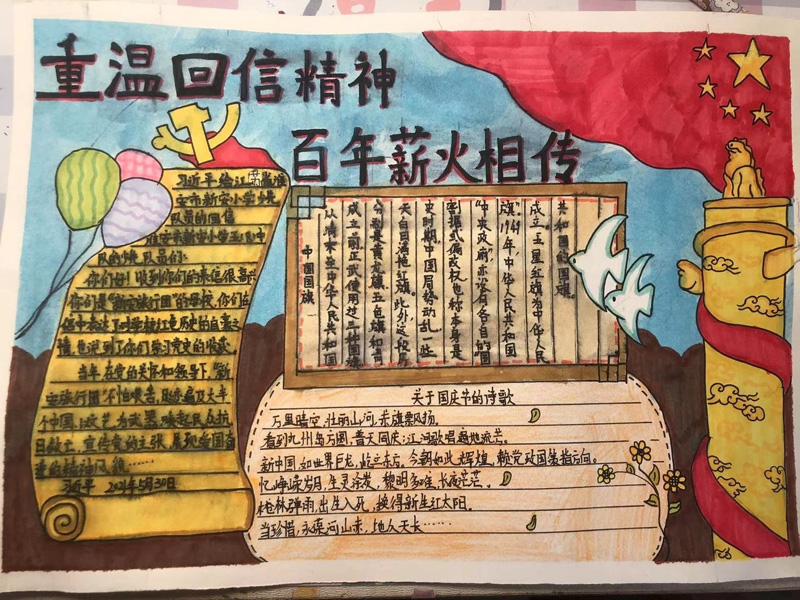 重温回信精神
百年薪火相传
习近平给江苏省淮
安市新安小学少先
队员的回信
淮安市新安小学五(8)中
队的少先队员们:
你们好!收到你们的来信很高兴
你们是"新安旅行团"的母校,你们在
信中表达了对学校红色历史的自豪之
情,也说到了你们学习党史的收获.
当年,在党的关怀和领导下,"新
安旅行团"不怕艰苦,足迹遍及大半
个中国,以文艺为武器,唤起民众抗
日救亡,宣传党的主张,展现爱国奋
进的精神风貌……
习近平 2021年5月30日
中国国旗
从清末至中华人民共和国
成立前正式使用过三种国旗
分别是黄龙旗五色旗和青
天白日满地红旗。此外这段历
史时期,中国局势动乱,一些
割据式偏政权也称本身是
"中央政府",亦设有各自的"国
旗"1949年,中华人民共和国
成立。五星红旗为中华人民
共和国的国旗。
关于国庆节的诗歌
万里晴空,壮丽山河,赤旗飘扬。
看到九州岛方圆,普天同庆;江河歌唱,遍地流芒。
新中国,如世界巨龙,屹立东方。今朝如此辉煌,赖党政国策指方向。
忆峥嵘岁月,生灵涂炭,黎明多难,长夜茫茫。
枪林弹雨,出生入死,换得新生红太阳。
当珍惜,永葆河山赤,地久天长……